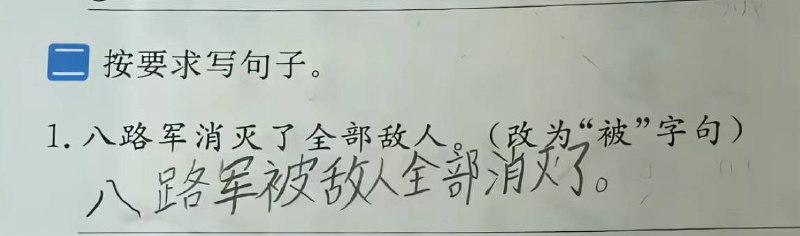 二 按要求写句子。
1. 八路军消灭了全部敌人。（改为“被”字句）
八路军被敌人全部消灭了。